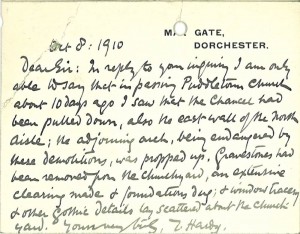 M GATE,
DORCHESTER.
Oct 8: 1910
Dear Sir: In reply to your inquiry I am only
able to say that in passing Puddletown Church
about 10 days ago I saw that the Chancel had
been pulled down, also the east wall of the North
Aisle; the adjoining arch, being endangered by
these demolitions, was propped up. Gravestones had
been removed from the churchyard, an extensive
clearing made & foundations dug; & window tracery
& other Gothic details lay scattered about the church
yard. Yours very truly, T. Hardy.